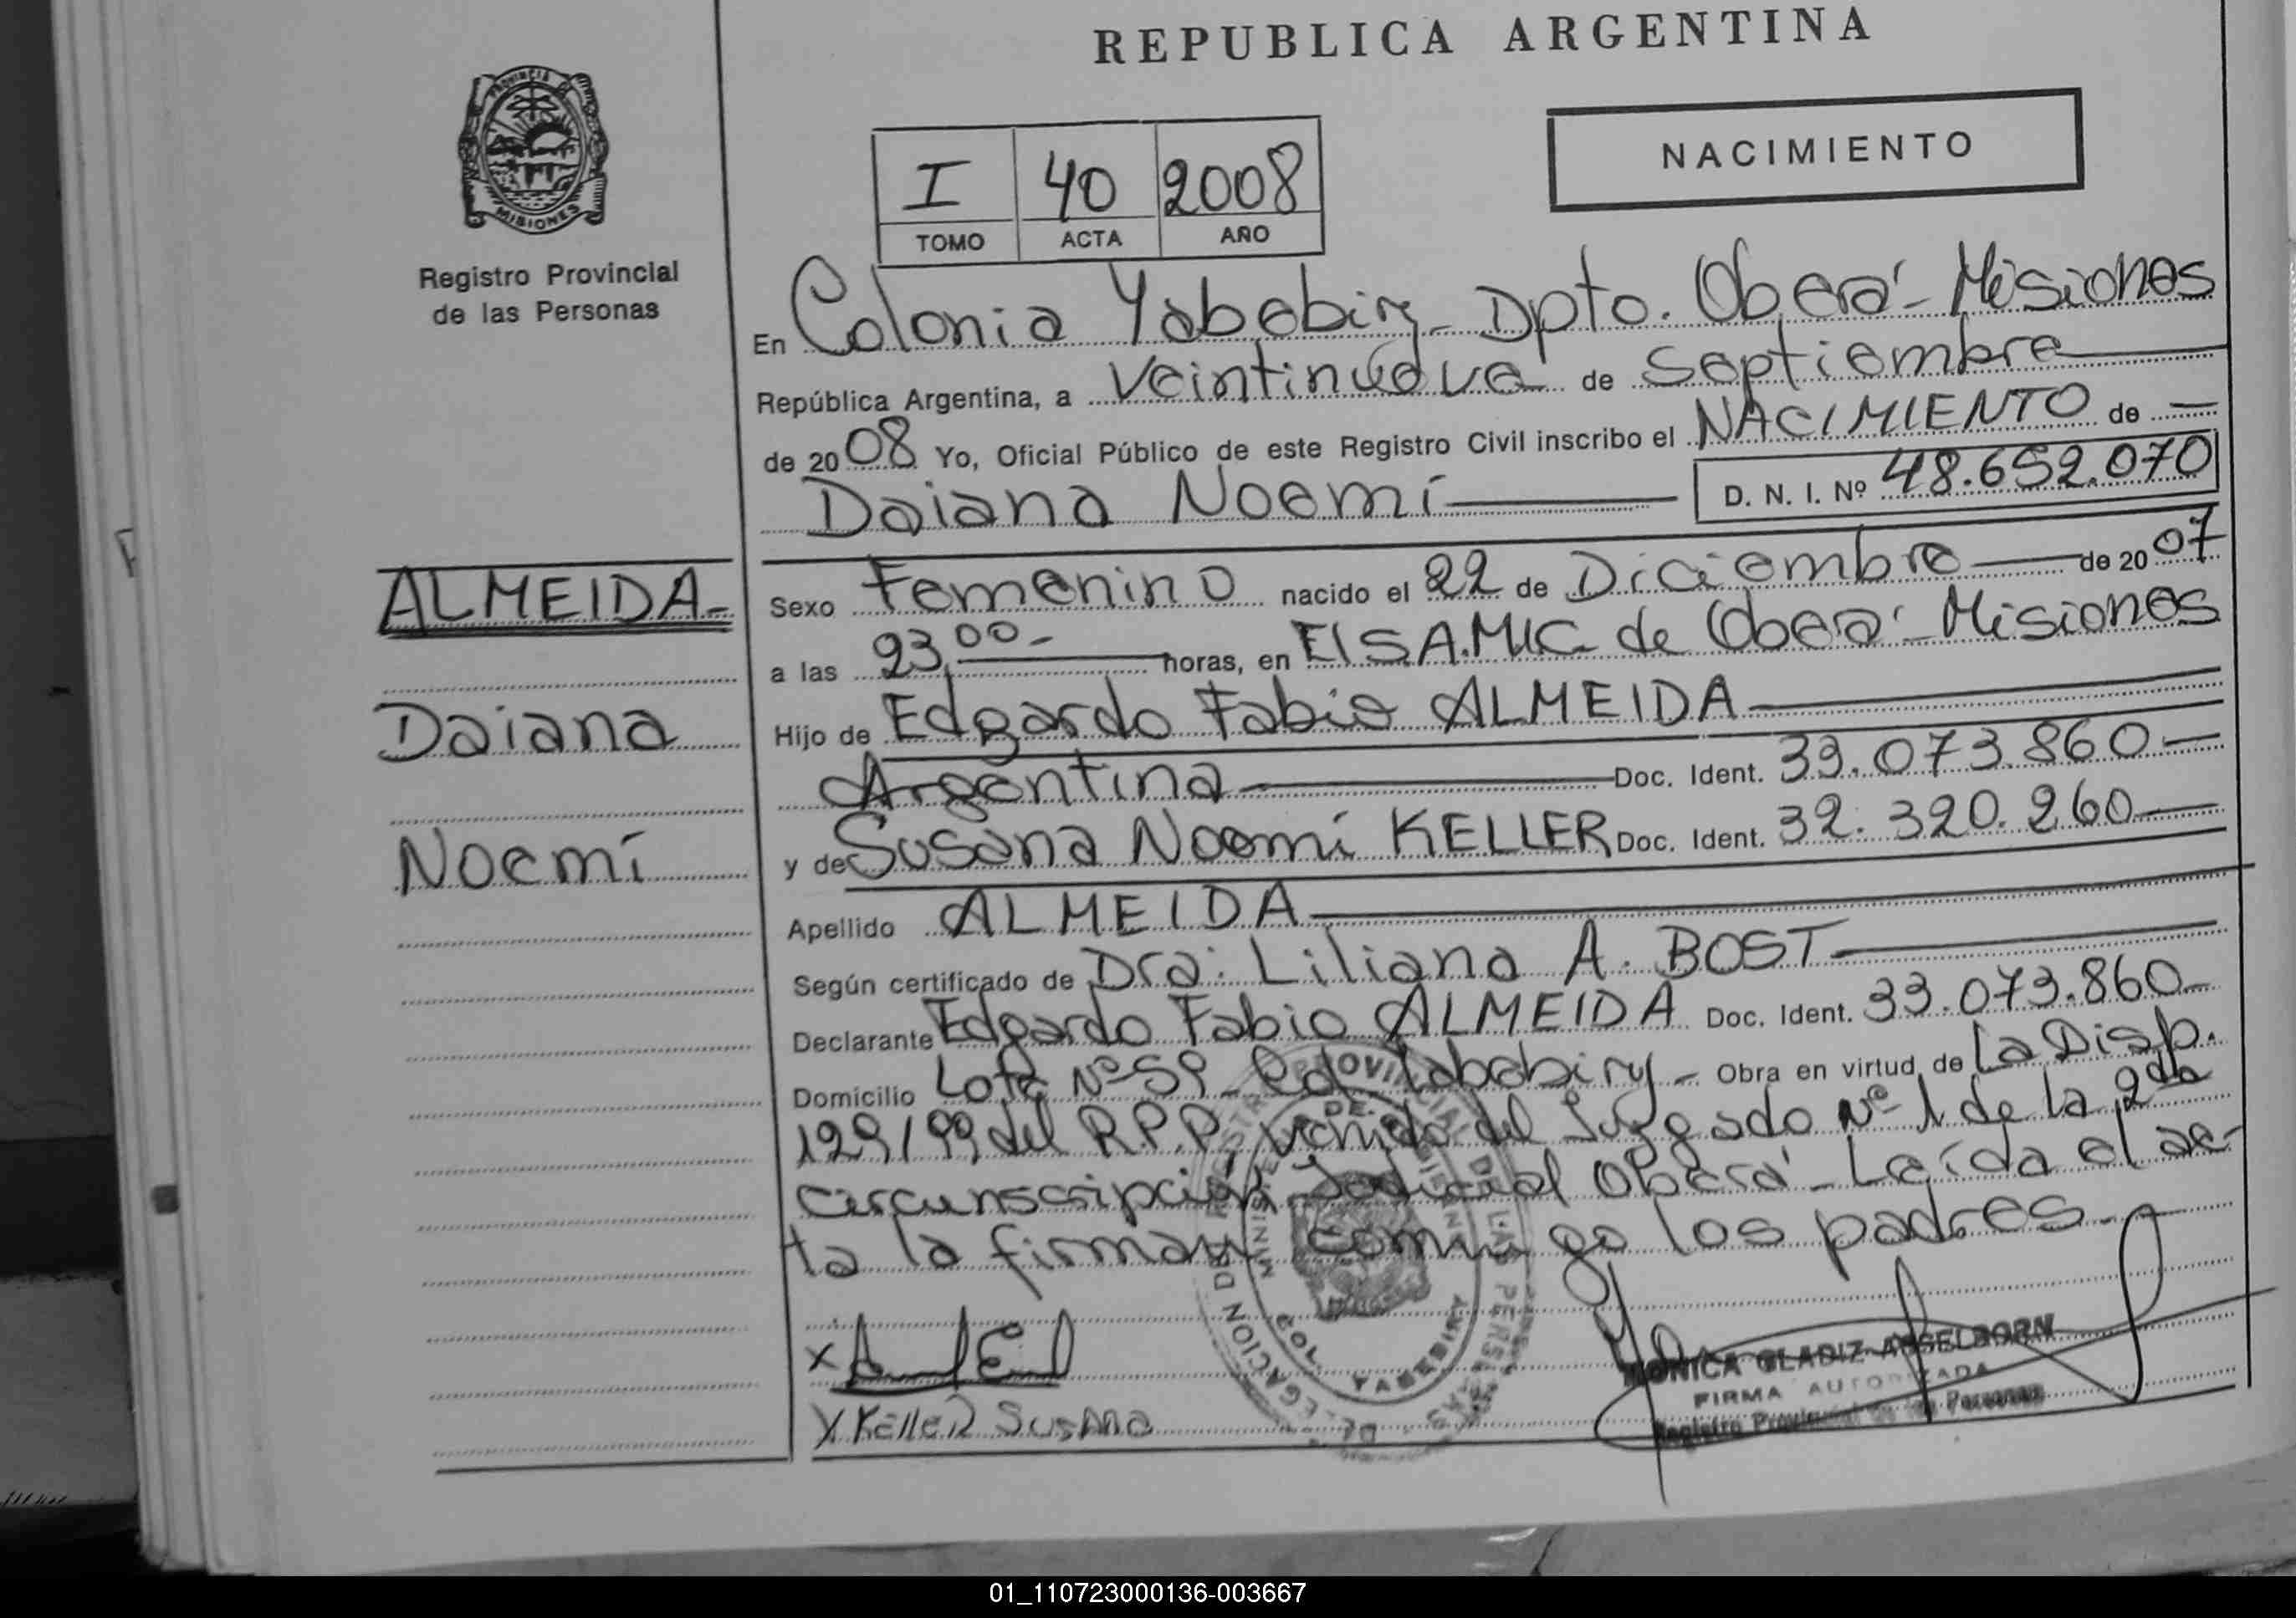 REPUBLICA ARGENTINA
PROVINCIA DE
MISIONES
Registro Provincial
de las Personas
I 40 2008
TOMO ACTA AÑO
NACIMIENTO
En Colonia Yabebiry - Dpto. Oberá - Misiones
República Argentina, a veintinueve de Septiembre
de 2008 Yo, Oficial Público de este Registro Civil inscribo el NACIMIENTO de —
Daiana Noemí D. N. I. Nº 48.652.070
ALMEIDA-
Daiana
Noemí
Sexo Femenino nacido el 22 de Diciembre de 2007
a las 23,00- horas, en El S.A.MIC de Oberá - Misiones
Hijo de Edgardo Fabio ALMEIDA
Argentina Doc. Ident. 33.073.860-
y de Susana Noemí KELLER Doc. Ident. 32.320.260-
Apellido ALMEIDA
Según certificado de Dra. Liliana A. BOST
Declarante Edgardo Fabio ALMEIDA Doc. Ident. 33.073.860-
Domicilio Lote Nº 59 Col Yabebiry - Obra en virtud de La Disp.
129/99 del R.P.P. venido del Juzgado Nº 1 de la 2da
circunscripción Judicial Oberá - Leída el ac-
ta la firman conmigo los padres-
X KelleR SusANA
REGISTRO PROVINCIAL DE LAS PERSONAS
DELEGACION
COL. YABEBIRY
MONICA GLADIZ ASSELBORN
FIRMA AUTORIZADA
Registro Provincial de las Personas
01_110723000136-003667